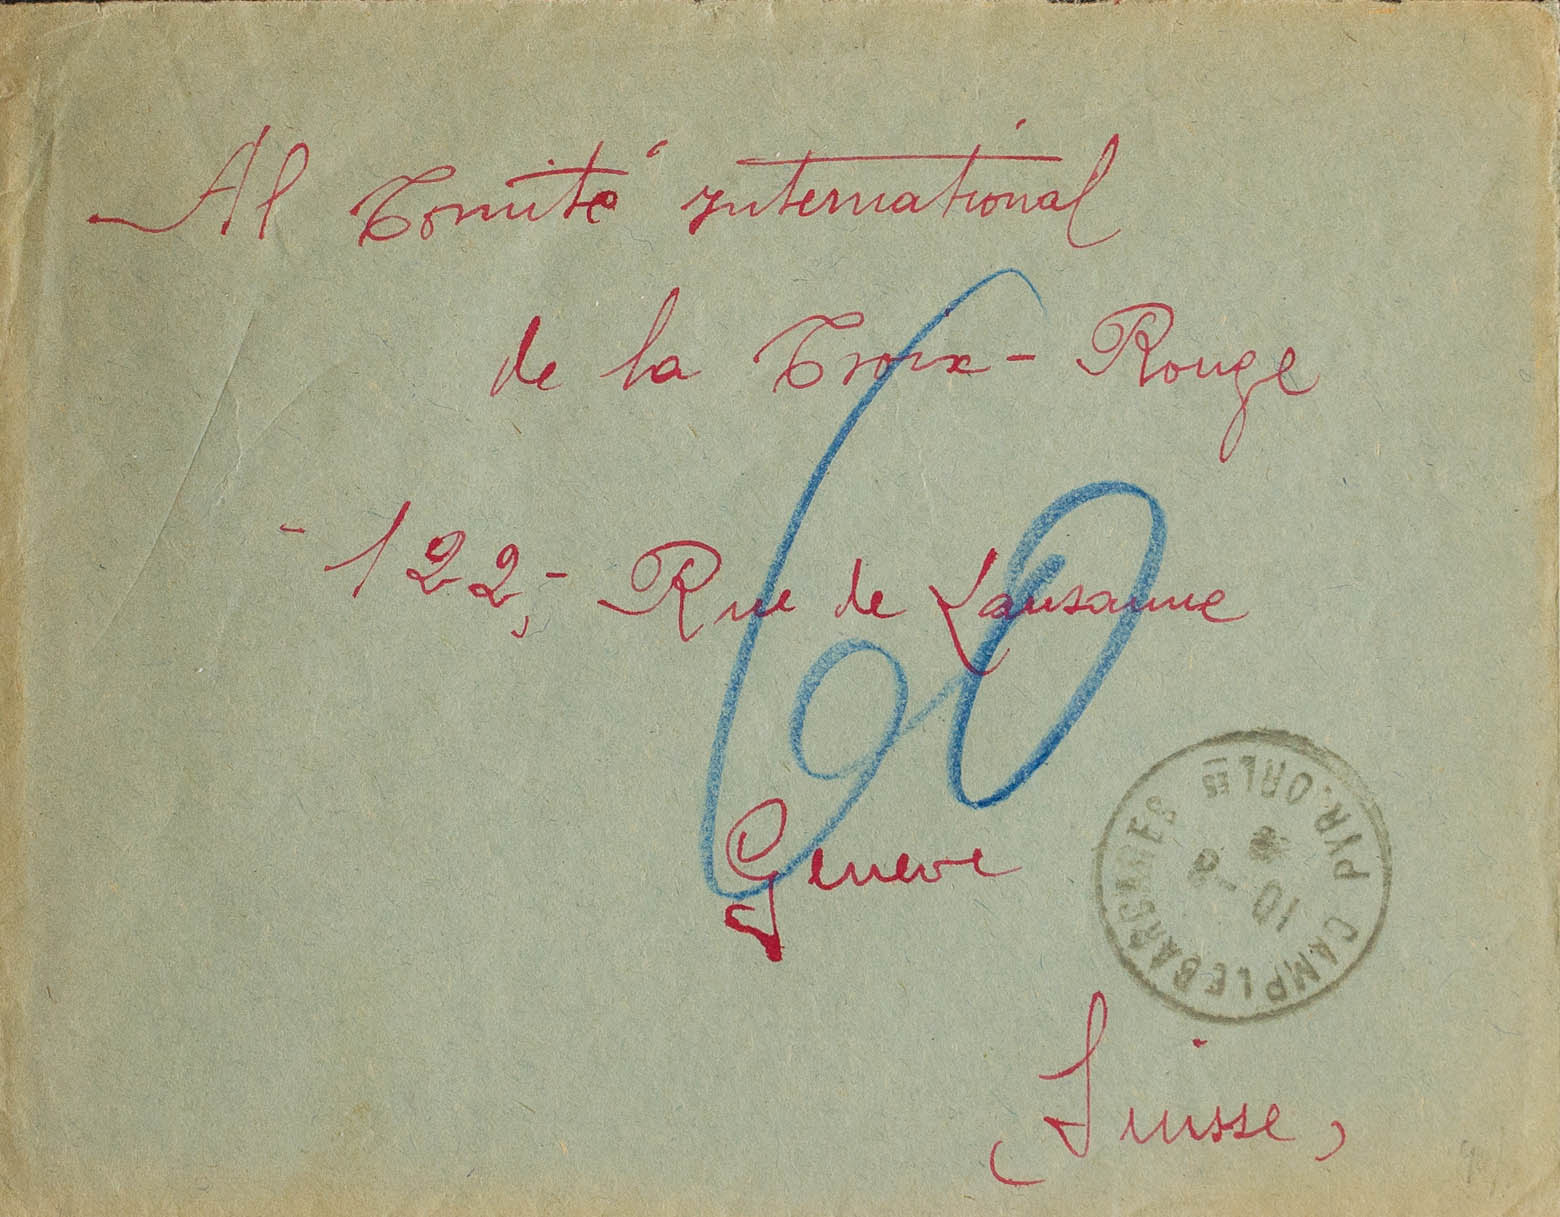 Al Comité international
de la Croix-Rouge
- 122,- Rue de Lausanne
60
Geneve
CAMP LE BARCARES PYR. ORLES
10 - 8
(Suisse)